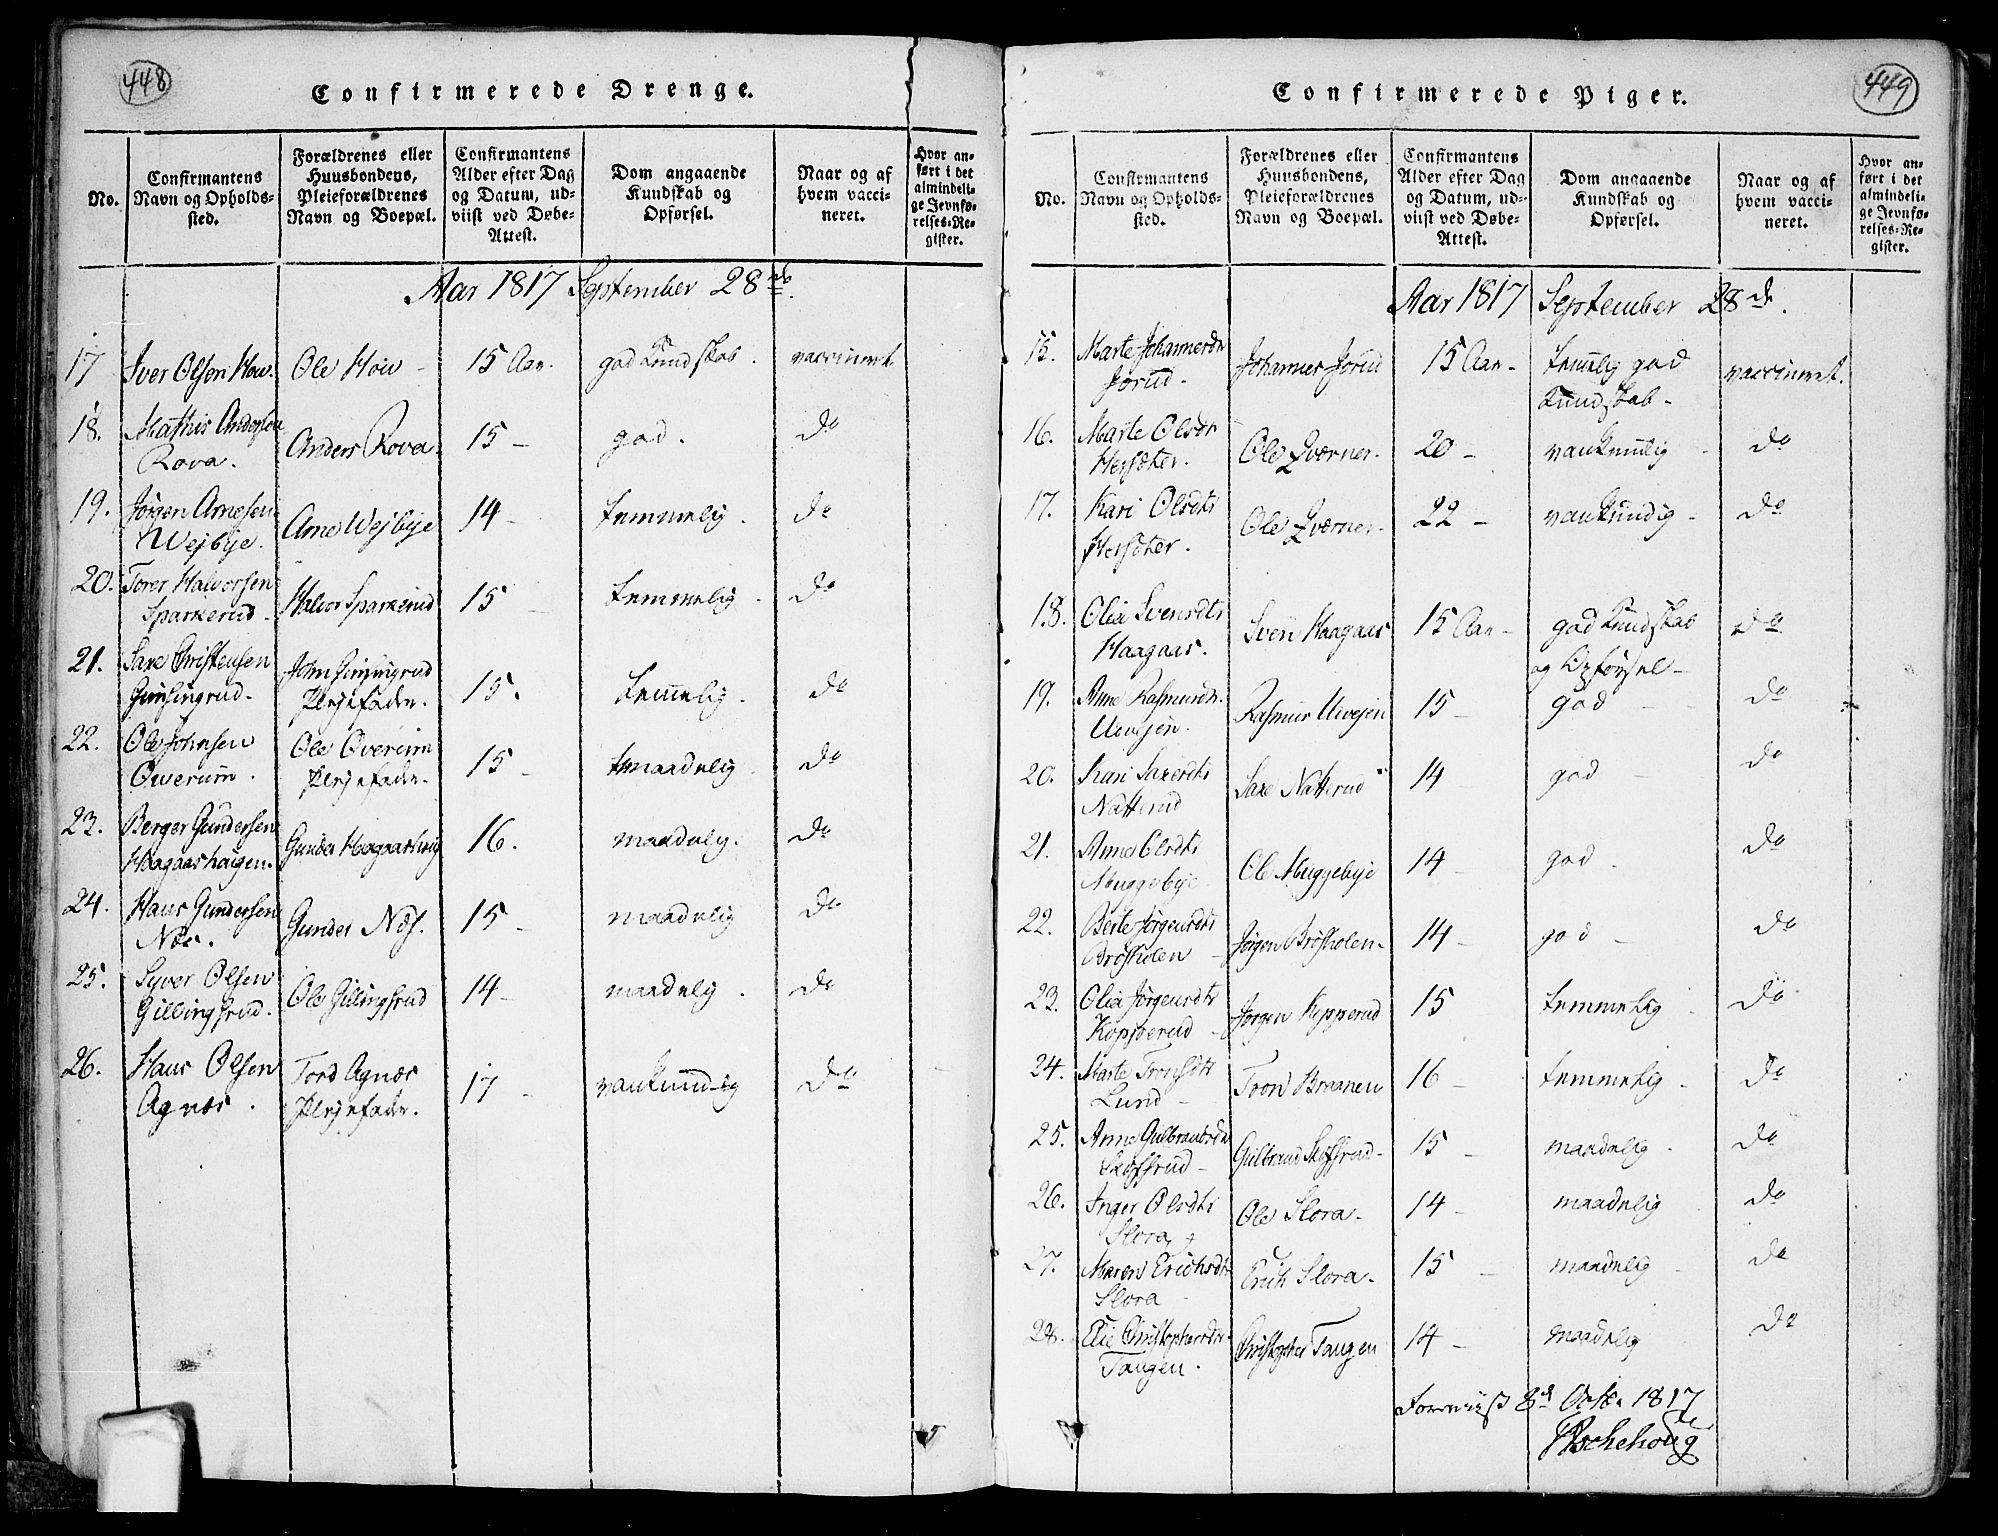 448
Confirmerede Drenge.
No.
Confirmantens Navn og Opholdssted.
Forældrenes eller Huusbondens, Pleieforældrenes Navn og Boepæl.
Confirmantens Alder efter Dag og Datum, udviist ved Døbe-Attest.
Dom angaaende Kundskab og Opførsel.
Naar og af hvem vaccineret.
Hvor anført i det almindelige Jevnførelses-Register.
Aar 1817 September 28de
17 Iver Olsen How. Ole Hoiv - 15 Aar. god Kundskab. vaccineret
18. Mathis Andersen Anders Rova. 15 - god. do
Rova.
19. Jörgen Arnesen Arne Wejbye 14 - temmelig. do
Wejbye.
20. Torer Halvorsen Halvor Sparkerud 15 - temmelig. do
Sparkerud.
21. Saxe Christensen John 15. temelig. do
Plejefader.
22. Ole Johnsen Ole Overum 15 - maadelig do
Owerum. Plejefader.
23. Berger Gundersen Gunder Haagaarhaug 16. maadelig. do
Haagaashaugen.
24. Hans Gundersen Gunder Næs. 15 - maadelig do
Næs.
25. Syver Olsen Ole Gillingsrud 14 - maadelig. do
Gillingsrud.
26. Hans Olsen Tord Agnæs 17 - vankundig do
Agnæs. Plejefader.
449
Confirmerede Piger.
No.
Confirmantens Navn og Opholdssted.
Forældrenes eller Huusbondens, Pleieforældrenes Navn og Boepæl.
Confirmantens Alder efter Dag og Datum, udviist ved Døbe-Attest.
Dom angaaende Kundskab og Opførsel.
Naar og af hvem vaccineret.
Hvor anført i det almindelige Jevnførelses-Register.
Aar 1817 September 28de.
15. Marte Johannesdr Johannes Jorud 15 Aar - temelig god vaccineret.
Jorud. Kundskab -
16. Marte Olsdr Ole Qværner. 20 - vankundig do
Hersæter.
17. Kari Olsdtr Ole Qværner. 22 - vankundig - do
Hersæter.
18. Olia Svensdtr Sven Haagaas 15 Aar - god Kundskab do
Haagaas. og Opförsel -
19. Anne Rasmusdr. Rasmus Uvejen 15 - god do
Uvejen.
20. Kari Saxesdtr Saxe Natterud 14 god - do
Natterud
21. Anne Olsdtr Ole Muggebye 14 - god. do
Muggebye
22. Berte Jörgensdtr Jörgen Bröstolen - 14 - god - do
Bröstolen
23. Olia Jörgensdtr Jörgen Kopperud 15 temmelig do
Kopperud
24. Marte Tronsdtr Toon Braanen 16 - temmelig. do
Lund -
25. Anne Gulbrandsdr Gulbrand Skofsrud - 15 - maadelig. do
Skofsrud -
26. Inger Olsdtr Ole Slora. 14 - maadelig do
Slora
27. Maren Erichsdtr Erich Slora. 15 - maadelig do
Slora
28. Elie Christophersdr. Christopher Tangen 14 - maadelig do
Tangen.
8d Octb. 1817
Aschehoug